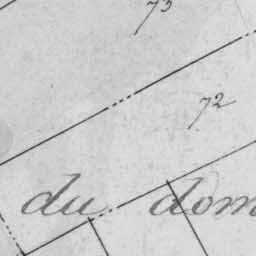 73
72
du dom